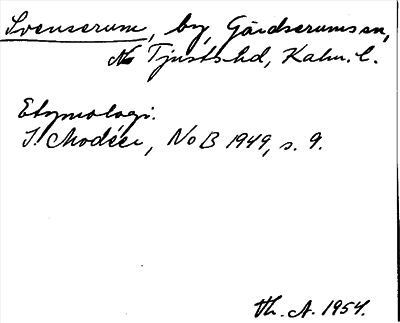 Svenserum, by, Gärdserums sn,
N Tjusts hd, Kalm. l.
Etymologi.
I. Modéer, NoB 1949, s. 9.
Th. A. 1954.